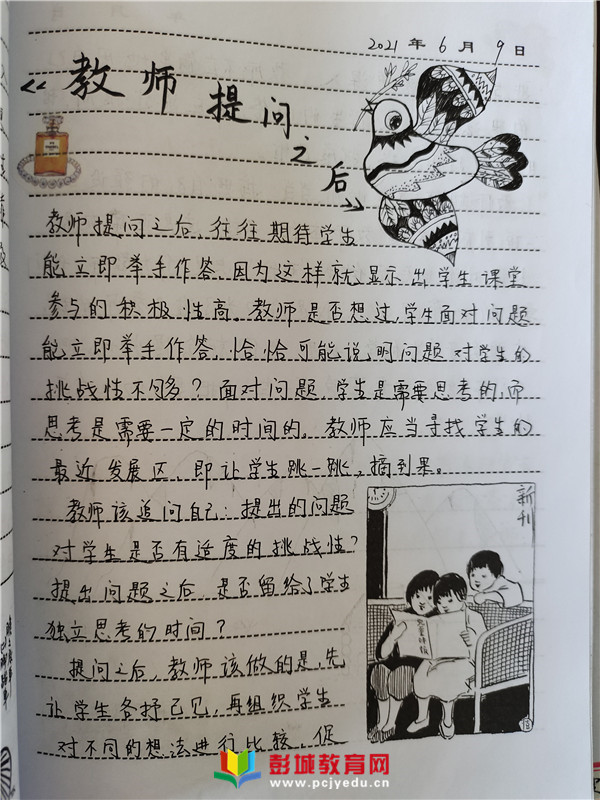 2021年6月9日
《教师提问之后》
教师提问之后，往往期待学生
能立即举手作答，因为这样就显示出学生课堂
参与的积极性高。教师是否想过，学生面对问题
能立即举手作答，恰恰可能说明问题对学生的
挑战性不够？面对问题，学生是需要思考的，而
思考是需要一定的时间的。教师应当寻找学生的
最近发展区，即让学生跳一跳，摘到果。
教师该追问自己：提出的问题
对学生是否有适度的挑战性？
提出问题之后，是否留给了学生
独立思考的时间？
提问之后，教师该做的是，先
让学生各抒己见，再组织学生
对不同的想法进行比较，促
新刊
彭城教育网
www.pcjyedu.cn